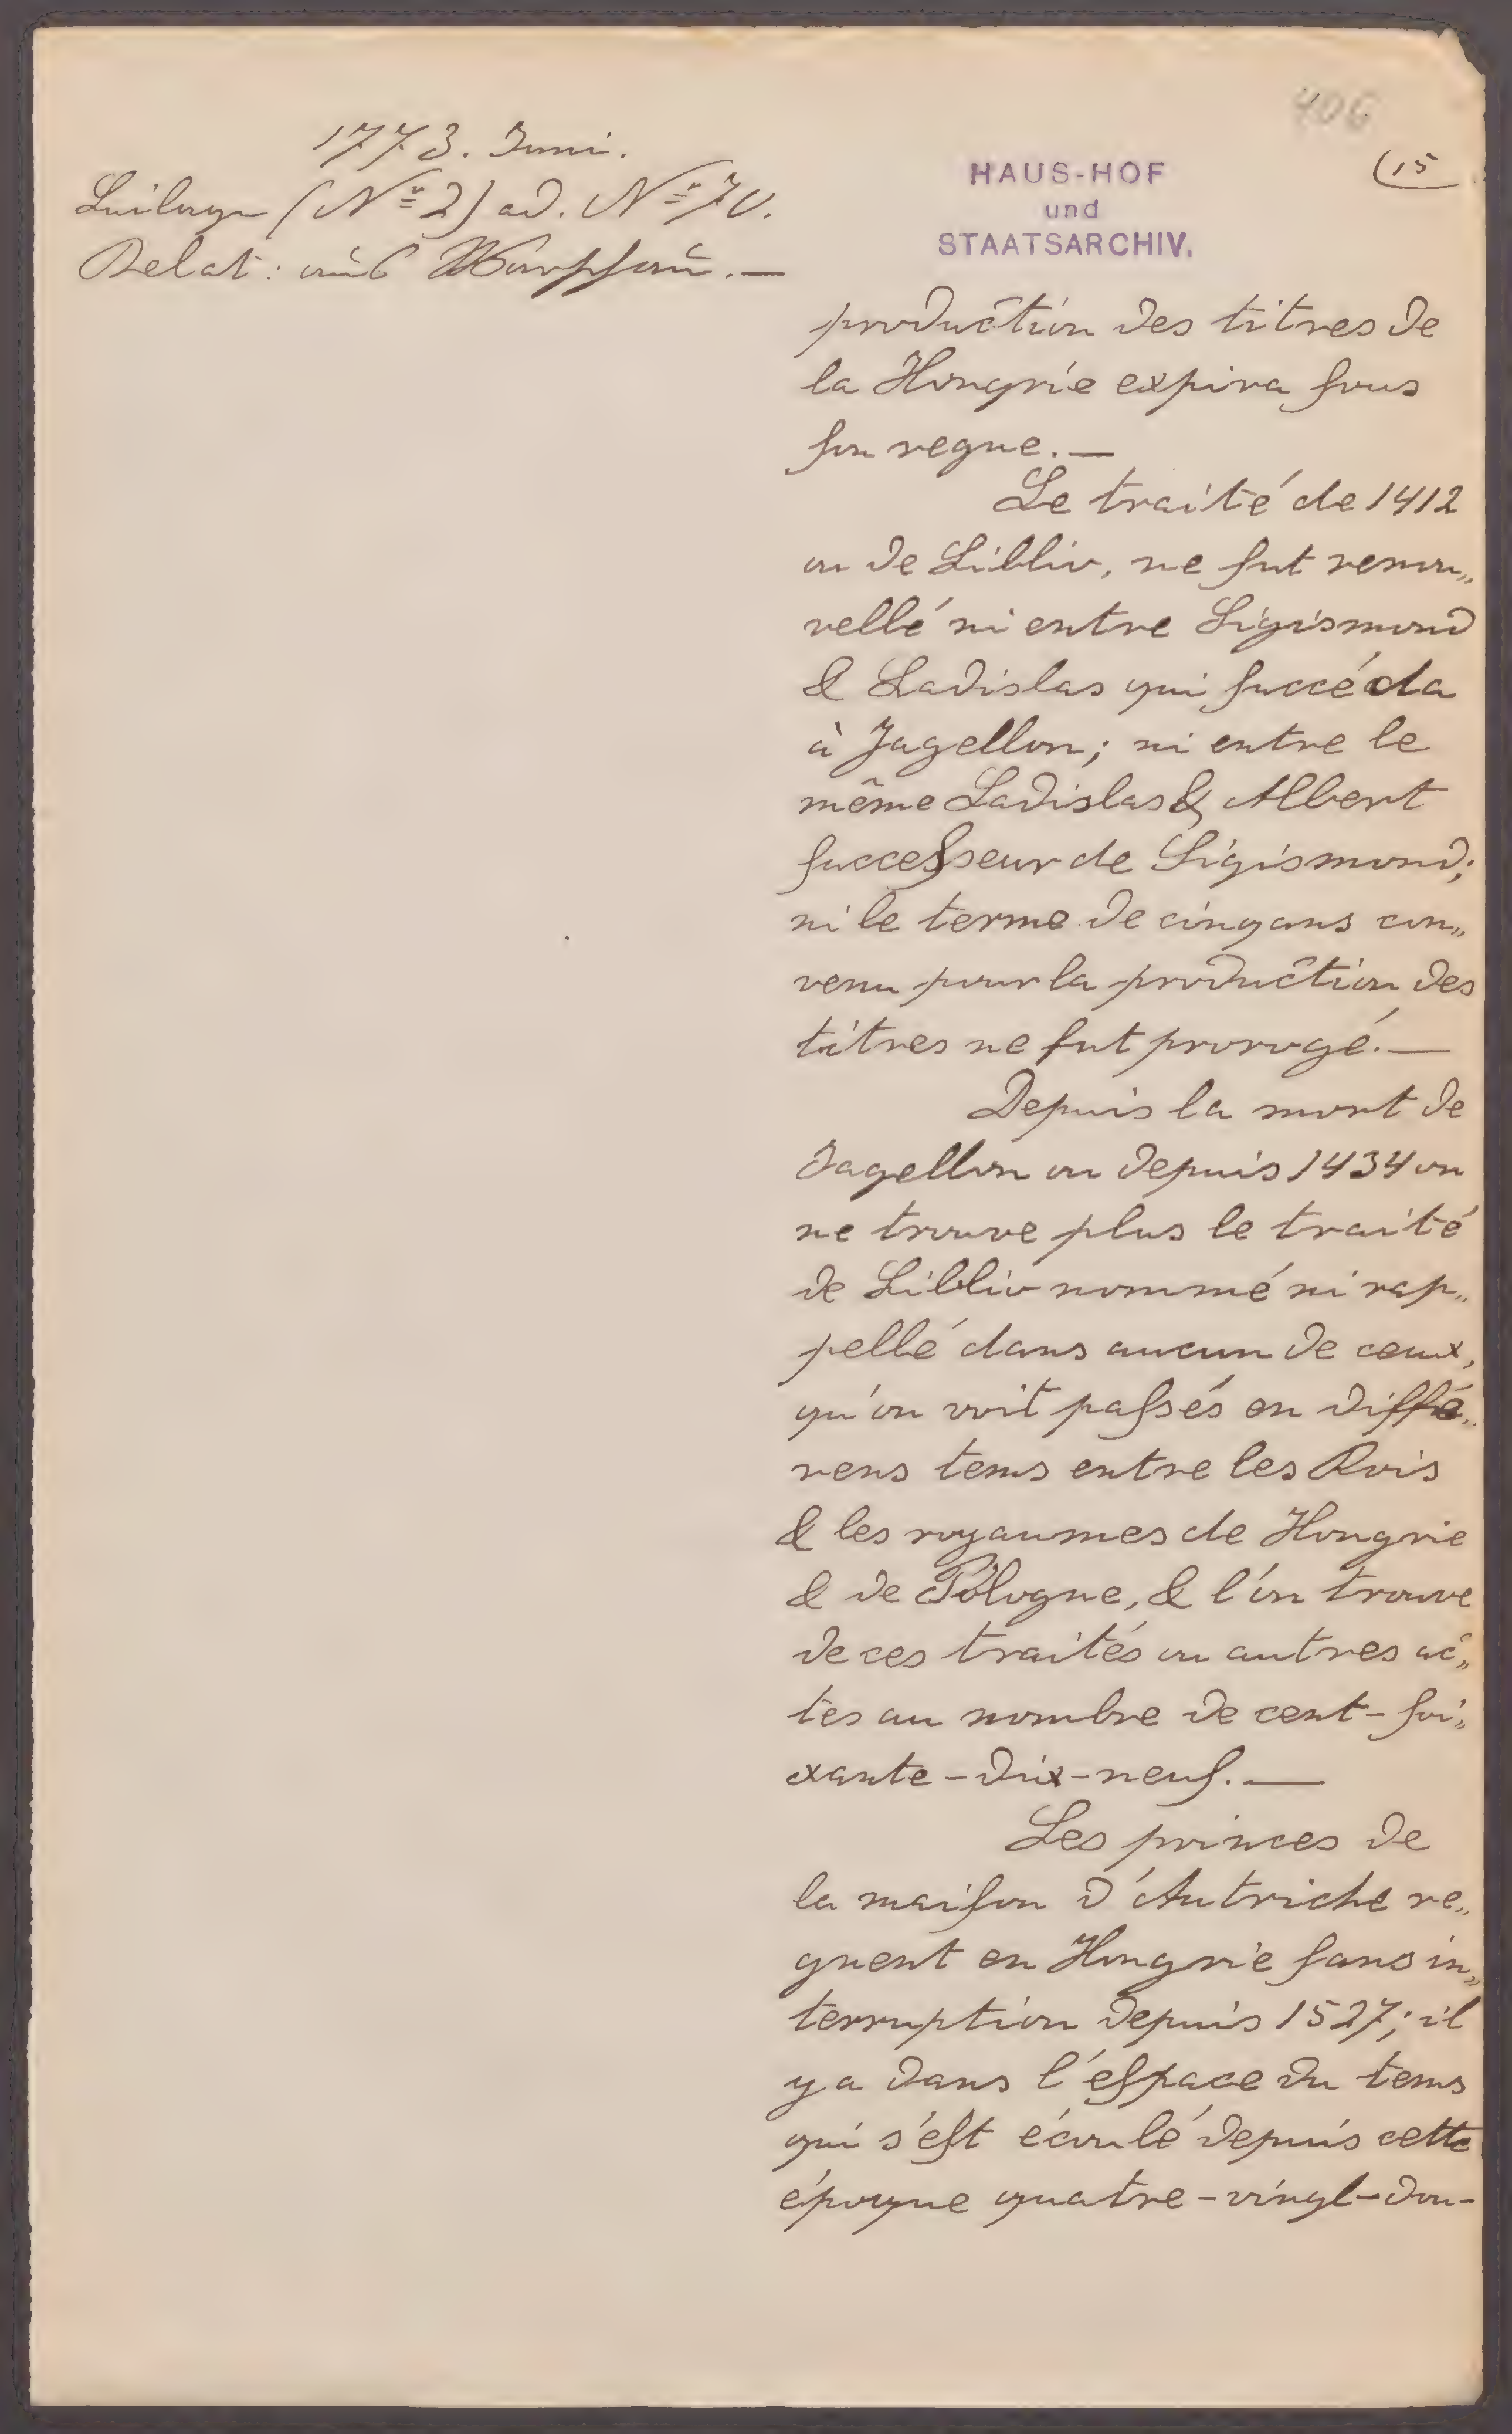 406
(15
1773. Juni.
Beilage (Nº 2) ad. Nº 70.
Relat: aus Warschau.—
HAUS-HOF
und
STAATSARCHIV.
production des titres de
la Hongrie expira sous
son regne.—
Le traité de 1412
ou de Liblio, ne fut renou„
vellé ni entre Sigismond
& Ladislas qui succéda
à Jagellon; ni entre le
même Ladislas & Albert
successeur de Sigismond;
ni le terme de cinq ans con„
venu pour la production des
titres ne fut prorogé.—
Depuis la mort de
Jagellon ou depuis 1434 on
ne trouve plus le traité
de Liblio nommé ni rap„
pellé dans aucun de ceux,
qu'on voit passés en diffé„
rens tems entre les Rois
& les royaumes de Hongrie
& de Pologne, & l'on trouve
de ces traités ou autres ac„
tes au nombre de cent-soi„
xante-dix-neuf.—
Les princes de
la maison d'Autriche re„
gnent en Hongrie sans in„
terruption depuis 1527; il
y a dans l'espace du tems
qui s'est écoulé depuis cette
époque quatre-vingt-dou-